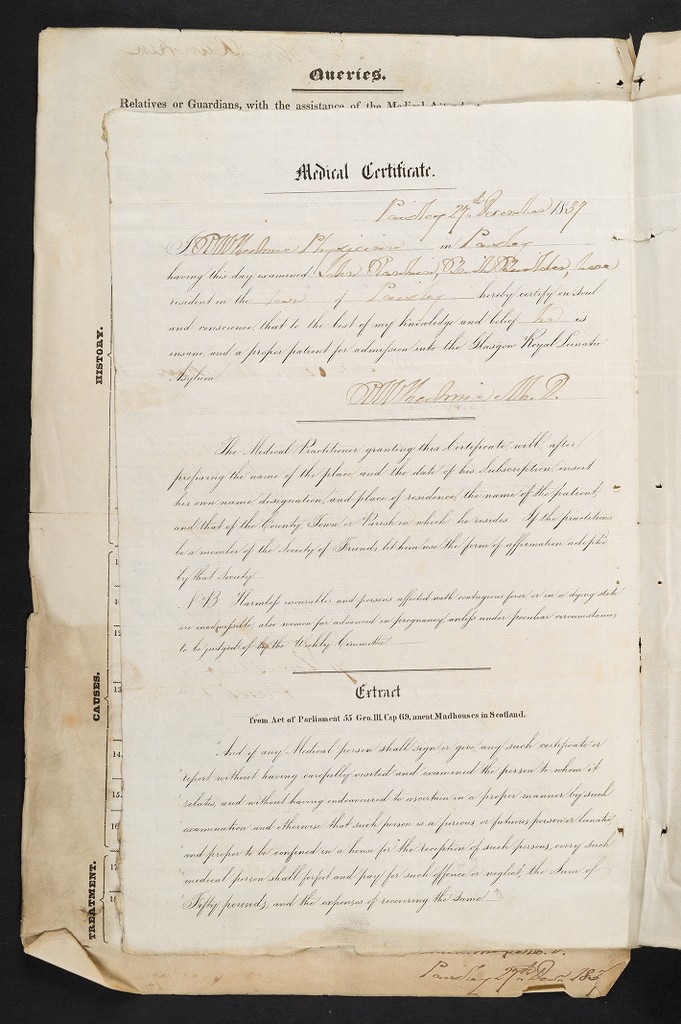 Queries.
Relatives or Guardians, with the assistance of the Medical
Medical Certificate.
Paisley 27th December 1837
Physician in Paisley
having this day examined John
resident in the town of Paisley hereby certify on soul
and conscience, that to the best of my knowledge and belief he is
insane, and a proper patient for admission into the Glasgow Royal Lunatic
Asylum
M. D.
The Medical Practitioner granting this Certificate, will, after
prefixing the name of the place, and the date of his Subscription, insert
his own name, designation, and place of residence, the name of the patient,
and that of the County, Town, or Parish in which he resides. If the practitioner
be a member of the Society of Friends, let him use the form of affirmation adopted
by that Society
N.B. Harmless incurables and persons affected with contagious fever or in a dying state
are inadmissible, also women far advanced in pregnancy, unless under peculiar circumstances
to be judged of by the Weekly Committee
Extract
from Act of Parliament 55 Geo. III. Cap 69, anent Madhouses in Scotland.
"And if any Medical person shall sign or give any such certificate or
report without having carefully visited and examined the person to whom it
relates, and without having endeavoured to ascertain in a proper manner by such
examination and otherwise that such person is a furious or fatuous person or lunatic,
and proper to be confined in a house for the reception of such persons, every such
medical person shall forfeit and pay for such offence or neglect, the Sum of
Fifty pounds, and the expenses of recovering the same."
HISTORY.
CAUSES.
TREATMENT.
12
13
14.
15.
16
17
18
Paisley 27th Decr 1837